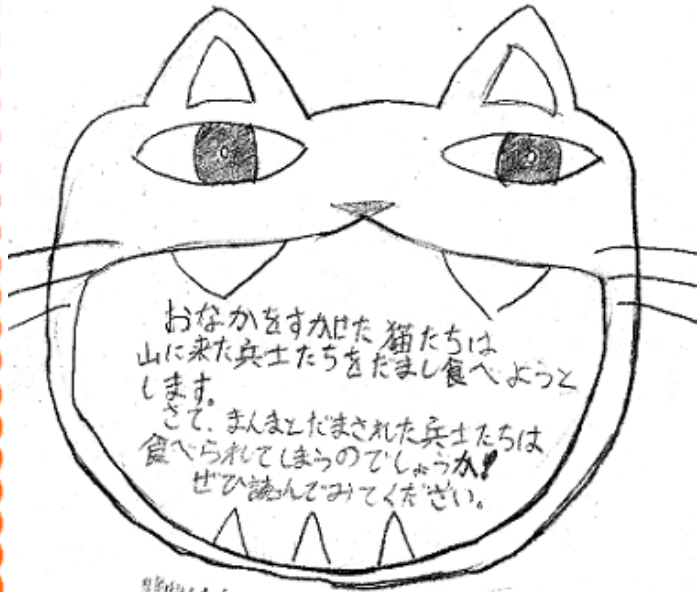 おなかをすかせた猫たちは
山に来た兵士たちをだまし食べようと
します。
さて、まんまとだまされた兵士たちは
食べられてしまうのでしょうか!
ぜひ読んでみてください。